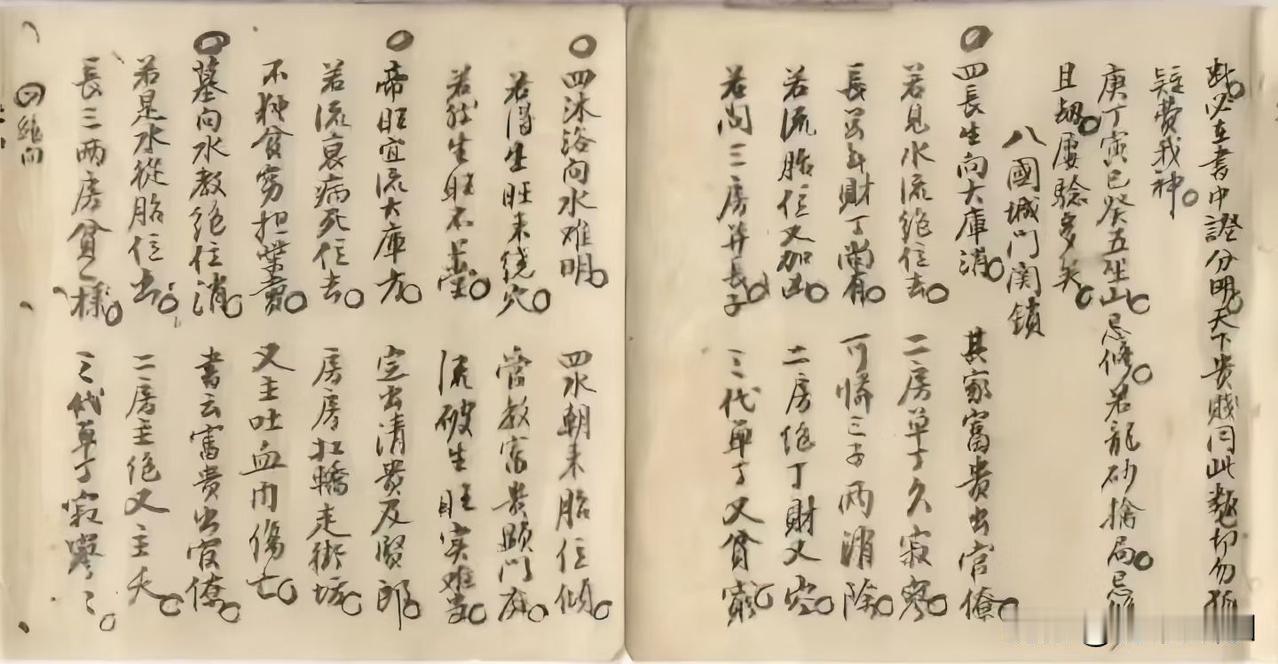 此必在書中證分明天下貴賤同此類切勿狐
疑費我神
庚丁寅巳癸五坐山忌修若龍砂擒局忌
且劫屢驗多矣
八國城門関鎖
四長生向大庫消 其家富貴出官僚
若見水流絕位去 二房单丁久寂寥
長男年財丁尚有 可憐三子兩消除
若流胎位又加凶 二房絕丁財又空
若问三房并長子 三代单丁又貧窮
四沐浴向水难明 四水朝来胎位傾
若得生旺来绕穴 當教富贵顕門庭
若然生旺不 流破生旺实难
帝旺宜流大庫方 定出清贵及賢郎
若流衰病死位去 房房扛轎走街坊
不独貧窮担柴賣 又主吐血内傷亡
墓向水教绝位消 書云富贵出官僚
若是水從胎位去 二房主绝又主夭
長三兩房貧一樣 三代单丁寂寥三
四绝向